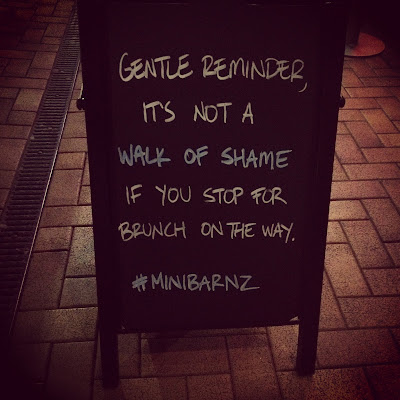 GENTLE REMINDER,
IT'S NOT A
WALK OF SHAME
IF YOU STOP FOR
BRUNCH ON THE WAY.
#MINIBARNZ